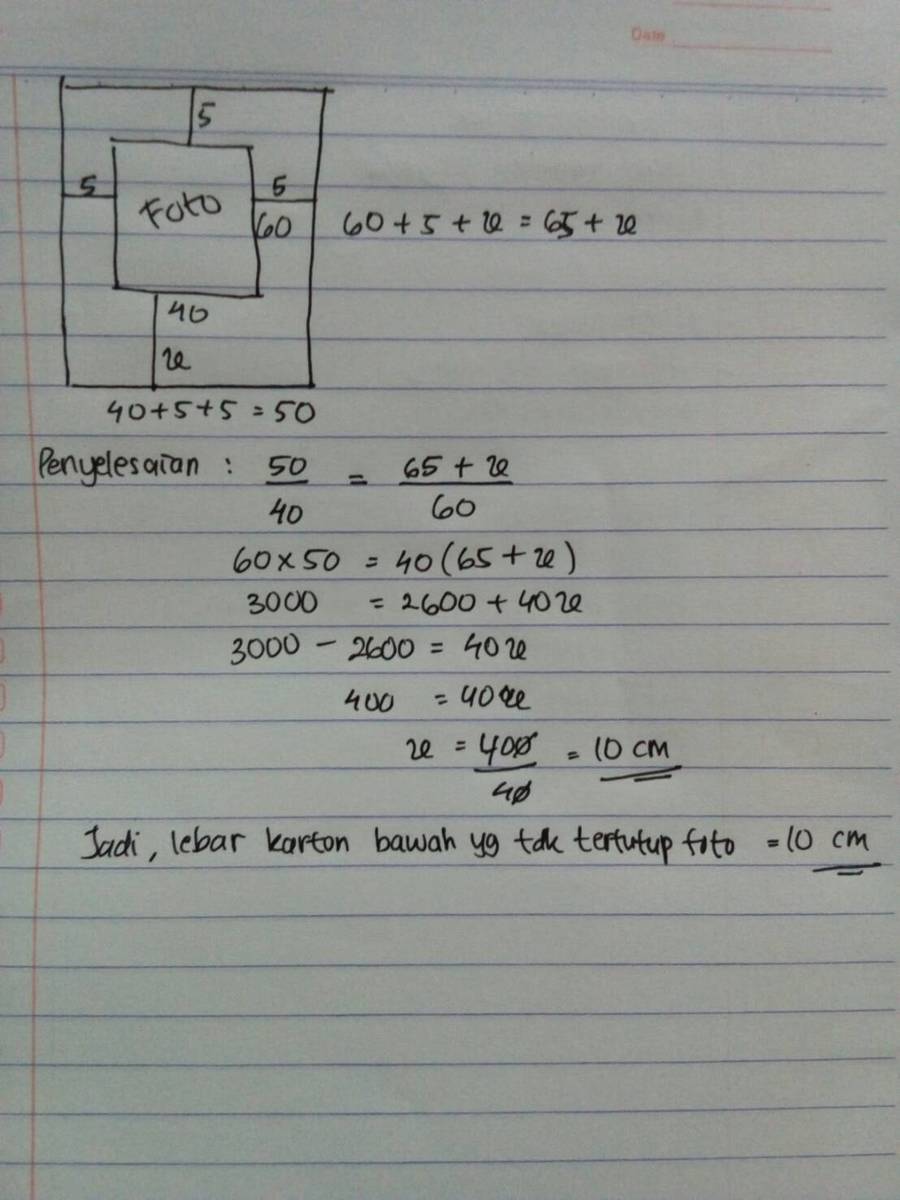 Date
5
5
Foto
5
60
60 + 5 + x = 65 + x
40
x
40 + 5 + 5 = 50
Penyelesaian : 50/40 = 65 + x/60
60 x 50 = 40 (65 + x)
3000 = 2600 + 40x
3000 - 2600 = 40x
400 = 40x
x = 400/40 = 10 cm
Jadi, lebar karton bawah yg tdk tertutup foto = 10 cm